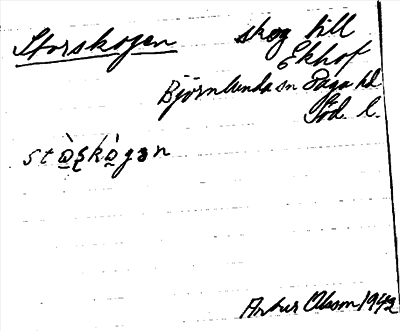 Storskogen skog till
Ekhof
Björnlunda sn Daga hd
Söd. l.
stò̱ʂkò̱gən
Artur Olsson 1942